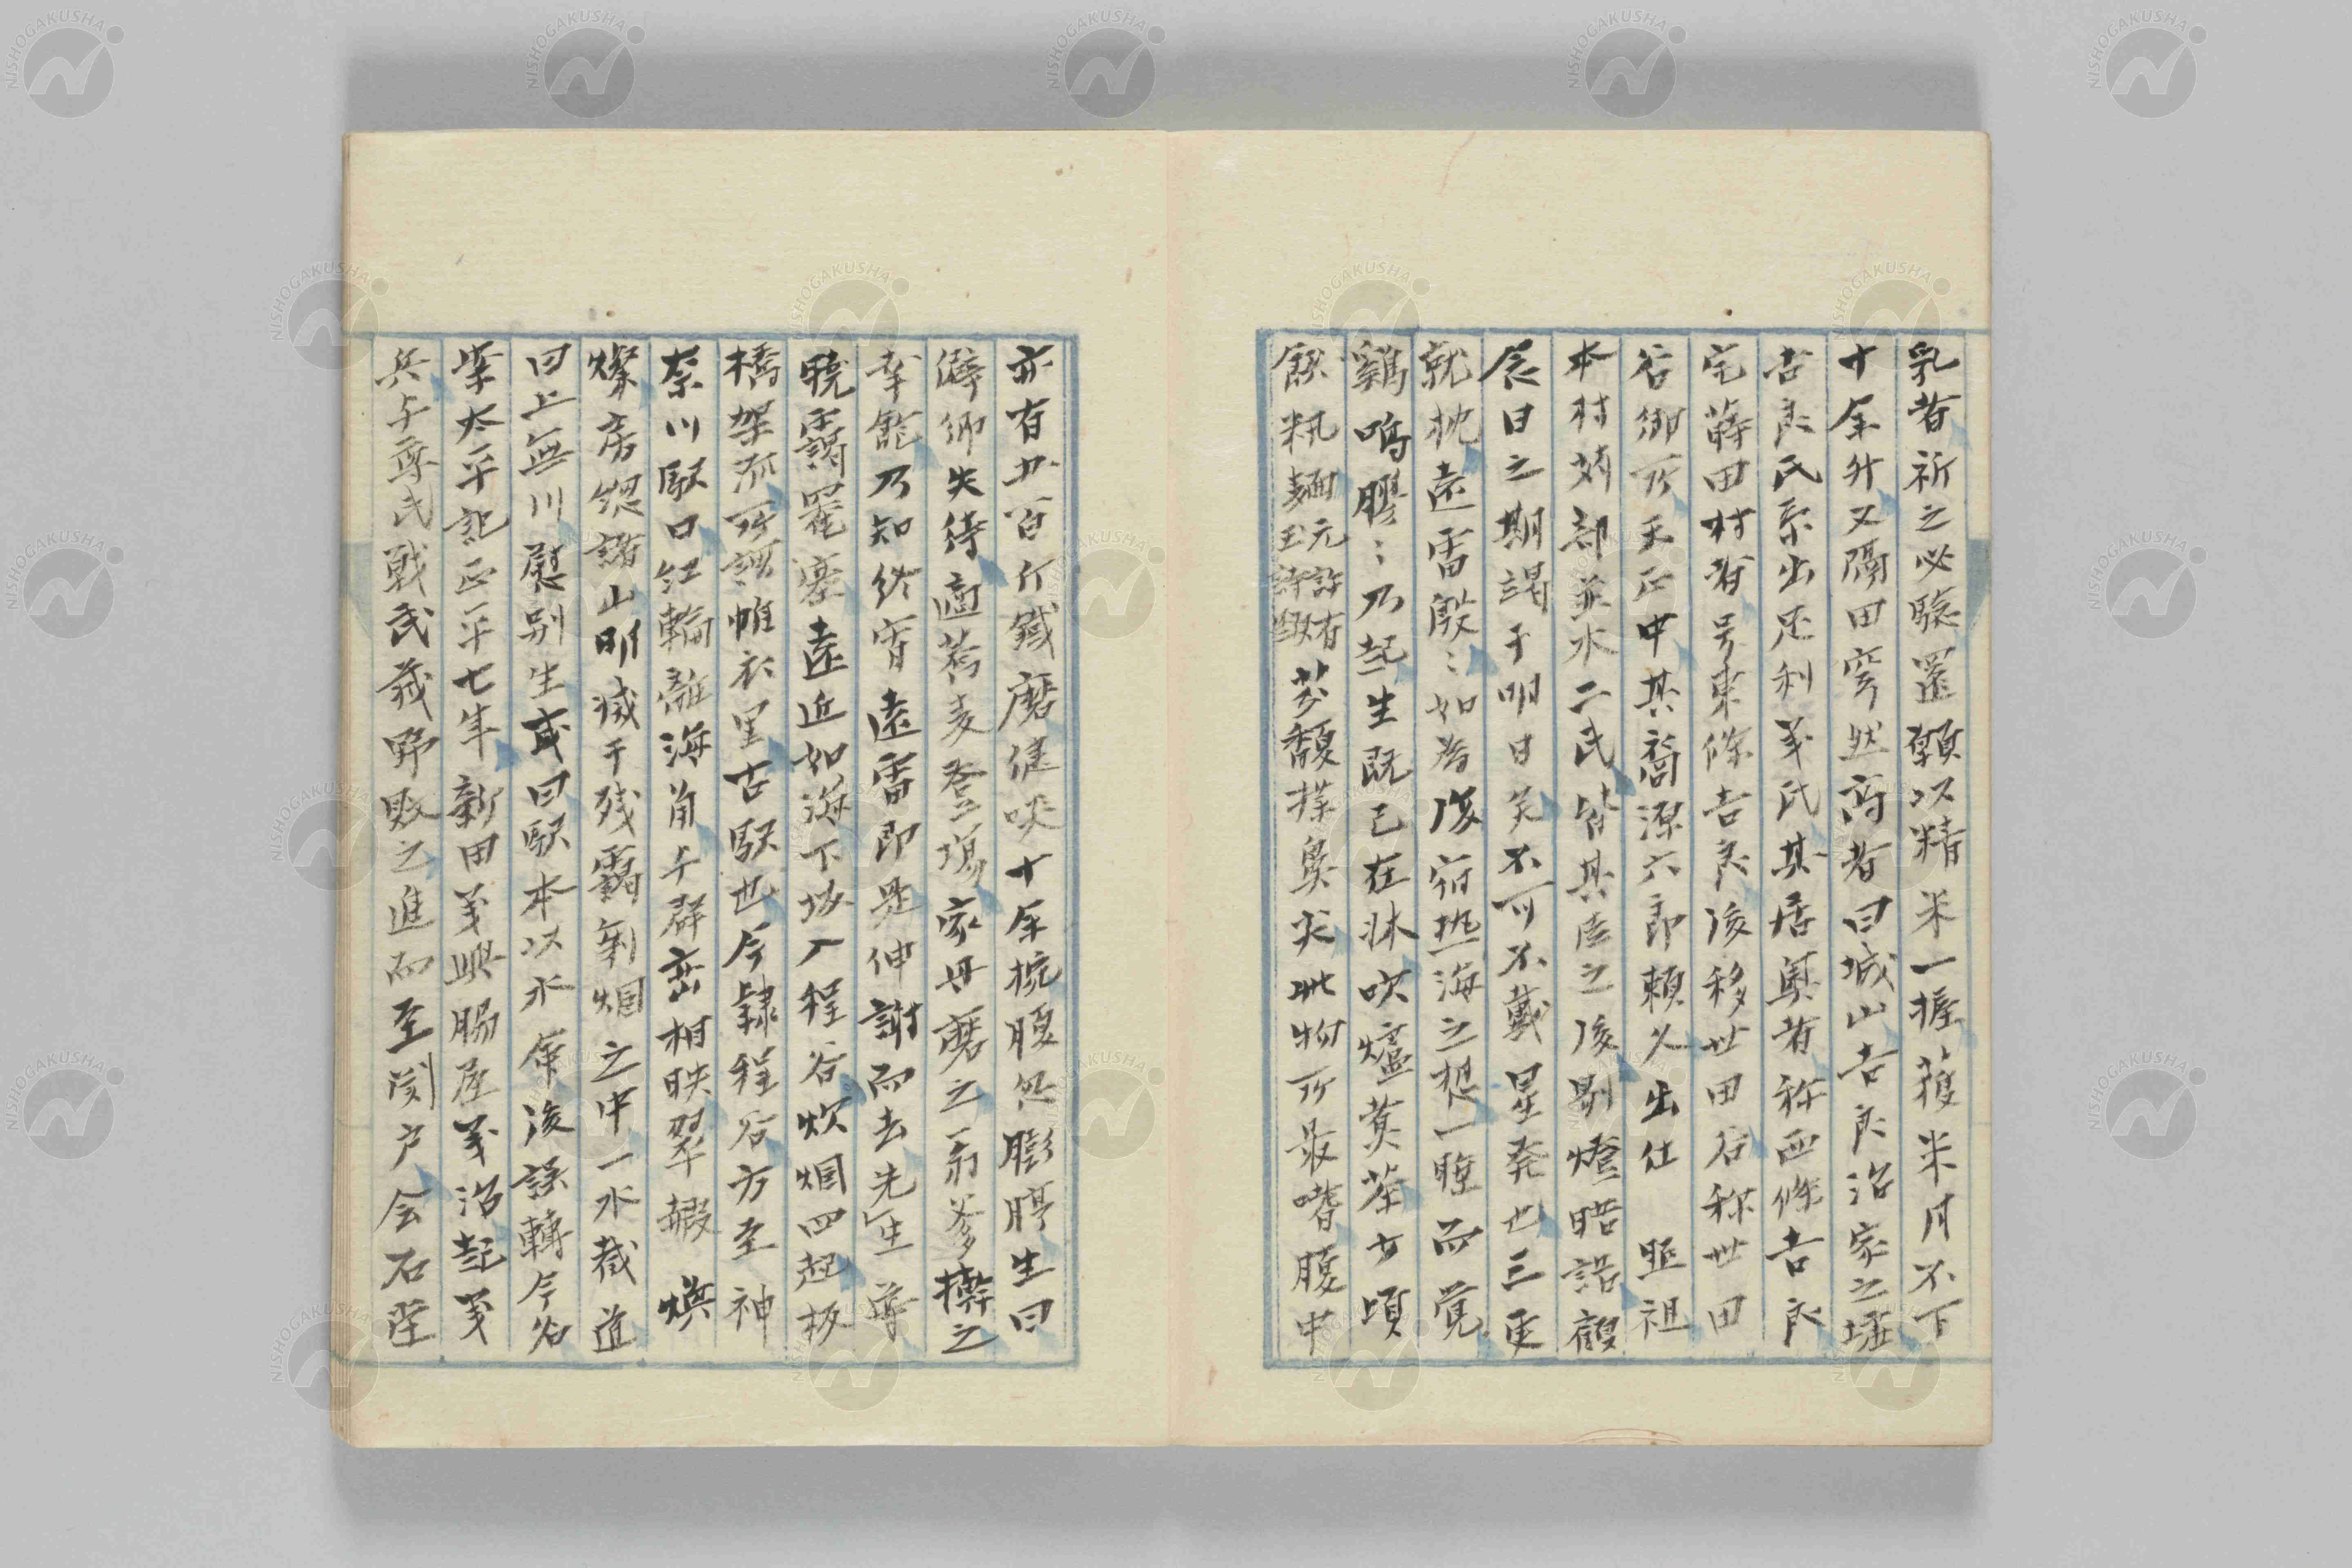 乳者祈之必驗置顆以精米一握獲米月不下
十余升又隔田穹然高者曰城山吉良治家之墟
吉良氏系出足利義氏其居奥者称西條吉良
宅蒔田村者号東條吉良後移世田谷称世田
谷御所天正中其裔源六郎頼久出仕 照祖
本村苅部並水二氏皆其臣之後剔燈晤語顧
念日之期謁于明日矣不可不戴星発也三更
就枕遠雷殷〻如為後宿熱海之想一睡而覚
鷄鳴膠〻乃起生既已在牀吹爐煑茶少頃
餽籸麺 元許有玉詩餟 芬馥撲鼻尖此物所最嗜腹中
亦有廿百斤鐵磨健啖十余椀腹忽膨脝生曰
僻郷失待適蕎麦登場家母磨之翁爹擀之
幸飽乃知終宵遠雷即是伸謝而去先生尋
曉靄罨塞遠近如海下坂入程谷炊烟四起板
橋架流所謂帷衣里古駅也今隷程谷方至神
奈川駅口紅輪離海角千群峦相映翠綴 煥
燦房総諸山明滅于残靄剰烟之中一水截道
曰上無川慰別生或曰駅本以水名後誤轉今名
案太平記正平七年新田義興脇屋義治起義
兵与尊氏戦武蔵野敗之進而至関戸会石堂